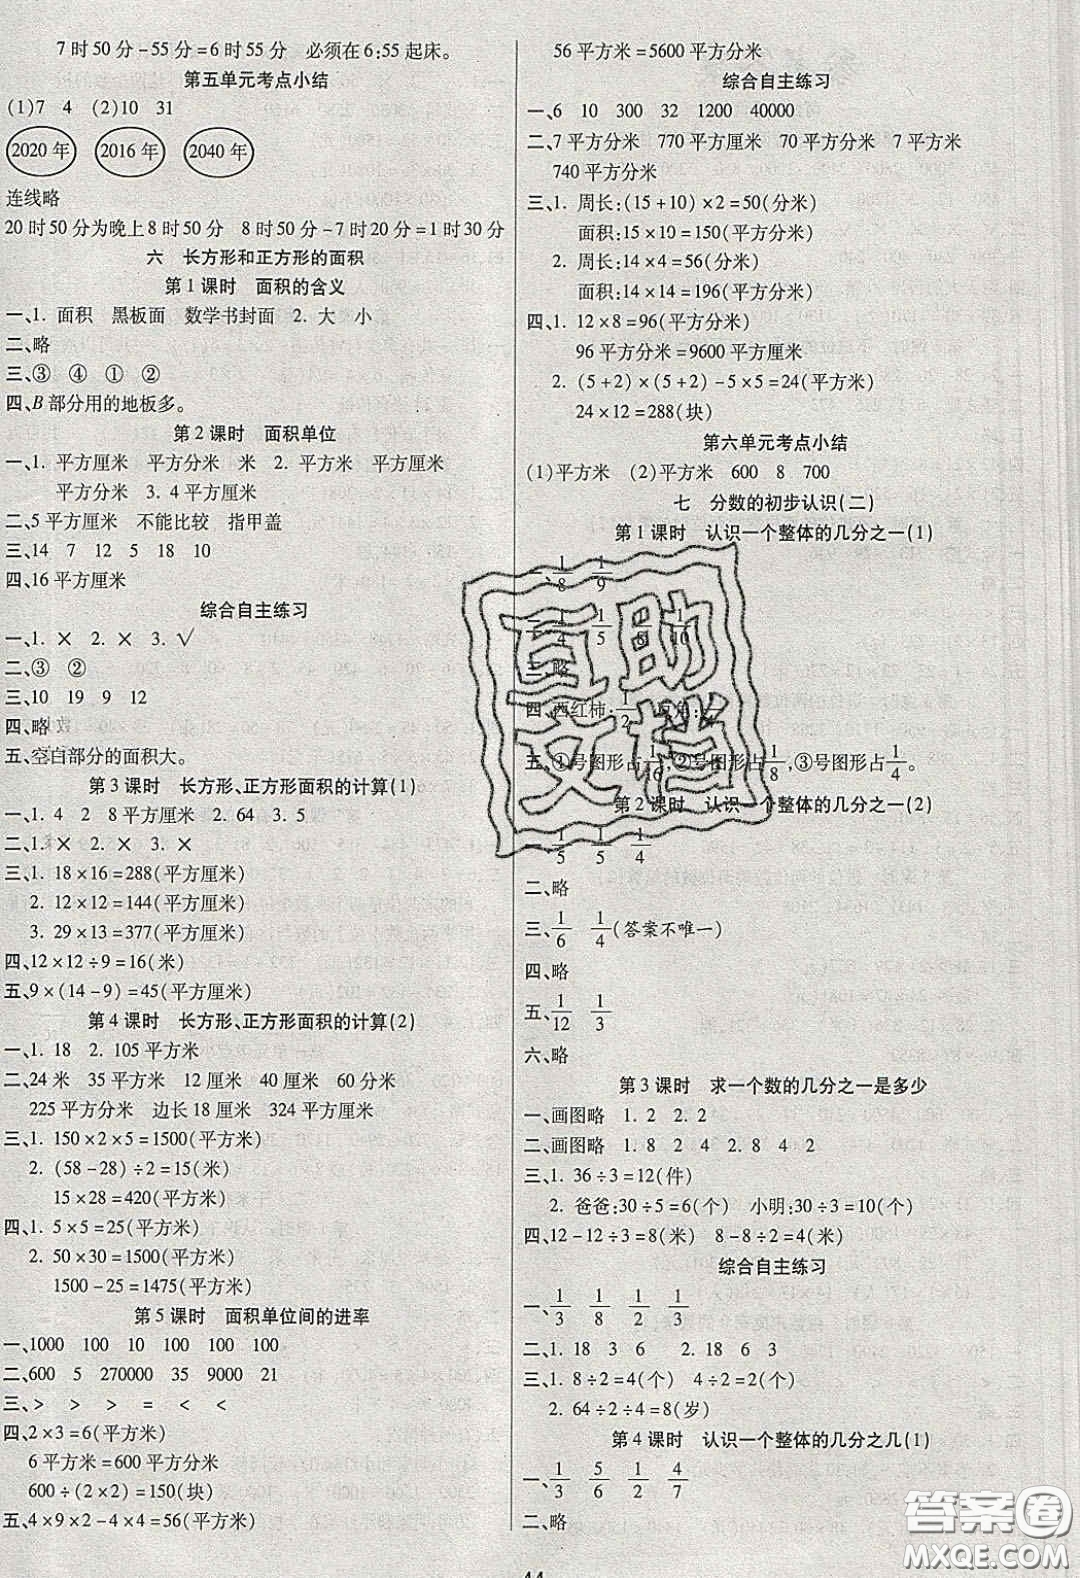 7时50分-55分=6时55分 必须在6:55起床。
第五单元考点小结
(1)7 4 (2)10 31
2020年 2016年 2040年
连线略
20时50分为晚上8时50分 8时50分-7时20分=1时30分
六 长方形和正方形的面积
第1课时 面积的含义
一、1. 面积 黑板面 数学书封面 2. 大 小
二、略
三、③ ④ ① ②
四、B部分用的地板多。
第2课时 面积单位
一、1. 平方厘米 平方分米 米 2. 平方米 平方厘米
平方分米 3. 4平方厘米
二、5平方厘米 不能比较 指甲盖
三、14 7 12 5 18 10
四、16平方厘米
综合自主练习
一、1. × 2. × 3. √
二、③ ②
三、10 19 9 12
四、略
五、空白部分的面积大。
第3课时 长方形、正方形面积的计算(1)
一、1. 4 2 8平方厘米 2. 64 3. 5
二、1. × 2. × 3. ×
三、1. 18×16=288(平方厘米)
2. 12×12=144(平方厘米)
3. 29×13=377(平方厘米)
四、12×12÷9=16(米)
五、9×(14-9)=45(平方厘米)
第4课时 长方形、正方形面积的计算(2)
一、1. 18 2. 105平方米
二、24米 35平方米 12厘米 40厘米 60分米
225平方分米 边长18厘米 324平方厘米
三、1. 150×2×5=1500(平方米)
2. (58-28)÷2=15(米)
15×28=420(平方米)
四、1. 5×5=25(平方米)
2. 50×30=1500(平方米)
1500-25=1475(平方米)
第5课时 面积单位间的进率
一、1000 100 10 100 100 100
二、600 5 270000 35 9000 21
三、> > > = < <
四、2×3=6(平方米)
6平方米=600平方分米
600÷(2×2)=150(块)
五、4×9×2-4×4=56(平方米)
56平方米=5600平方分米
综合自主练习
一、6 10 300 32 1200 40000
二、7平方分米 770平方厘米 70平方分米 7平方米
740平方分米
三、1. 周长:(15+10)×2=50(分米)
面积:15×10=150(平方分米)
2. 周长:14×4=56(分米)
面积:14×14=196(平方分米)
四、1. 12×8=96(平方分米)
96平方分米=9600平方厘米
2. (5+2)×(5+2)-5×5=24(平方米)
24×12=288(块)
第六单元考点小结
(1)平方米 (2)平方米 600 8 700
七 分数的初步认识(二)
第1课时 认识一个整体的几分之一(1)
一、1/8 1/9
二、1/4 1/5 1/8 1/10
三、略
四、西红柿:1/2
五、①号图形占1/16,②号图形占1/8,③号图形占1/4。
第2课时 认识一个整体的几分之一(2)
一、1/5 1/5 1/4
二、略
三、1/6 1/4(答案不唯一)
四、略
五、1/12 1/3
六、略
第3课时 求一个数的几分之一是多少
一、画图略 1. 2 2. 2
二、画图略 1. 8 2 4 2. 8 4 2
三、1. 36÷3=12(件)
2. 爸爸:30÷5=6(个) 小明:30÷3=10(个)
四、12-12÷3=8(米) 8-8÷2=4(米)
综合自主练习
一、1/3 1/8 1/2 1/3
二、1. 18 3 6 2. 18 6 3
三、1. 8÷2=4(个) 4÷2=2(个)
2. 64÷2÷4=8(岁)
第4课时 认识一个整体的几分之几(1)
一、1/3 5/6 1/2 4/7
二、略
44
互助
文档
答案圈
MXQE.COM